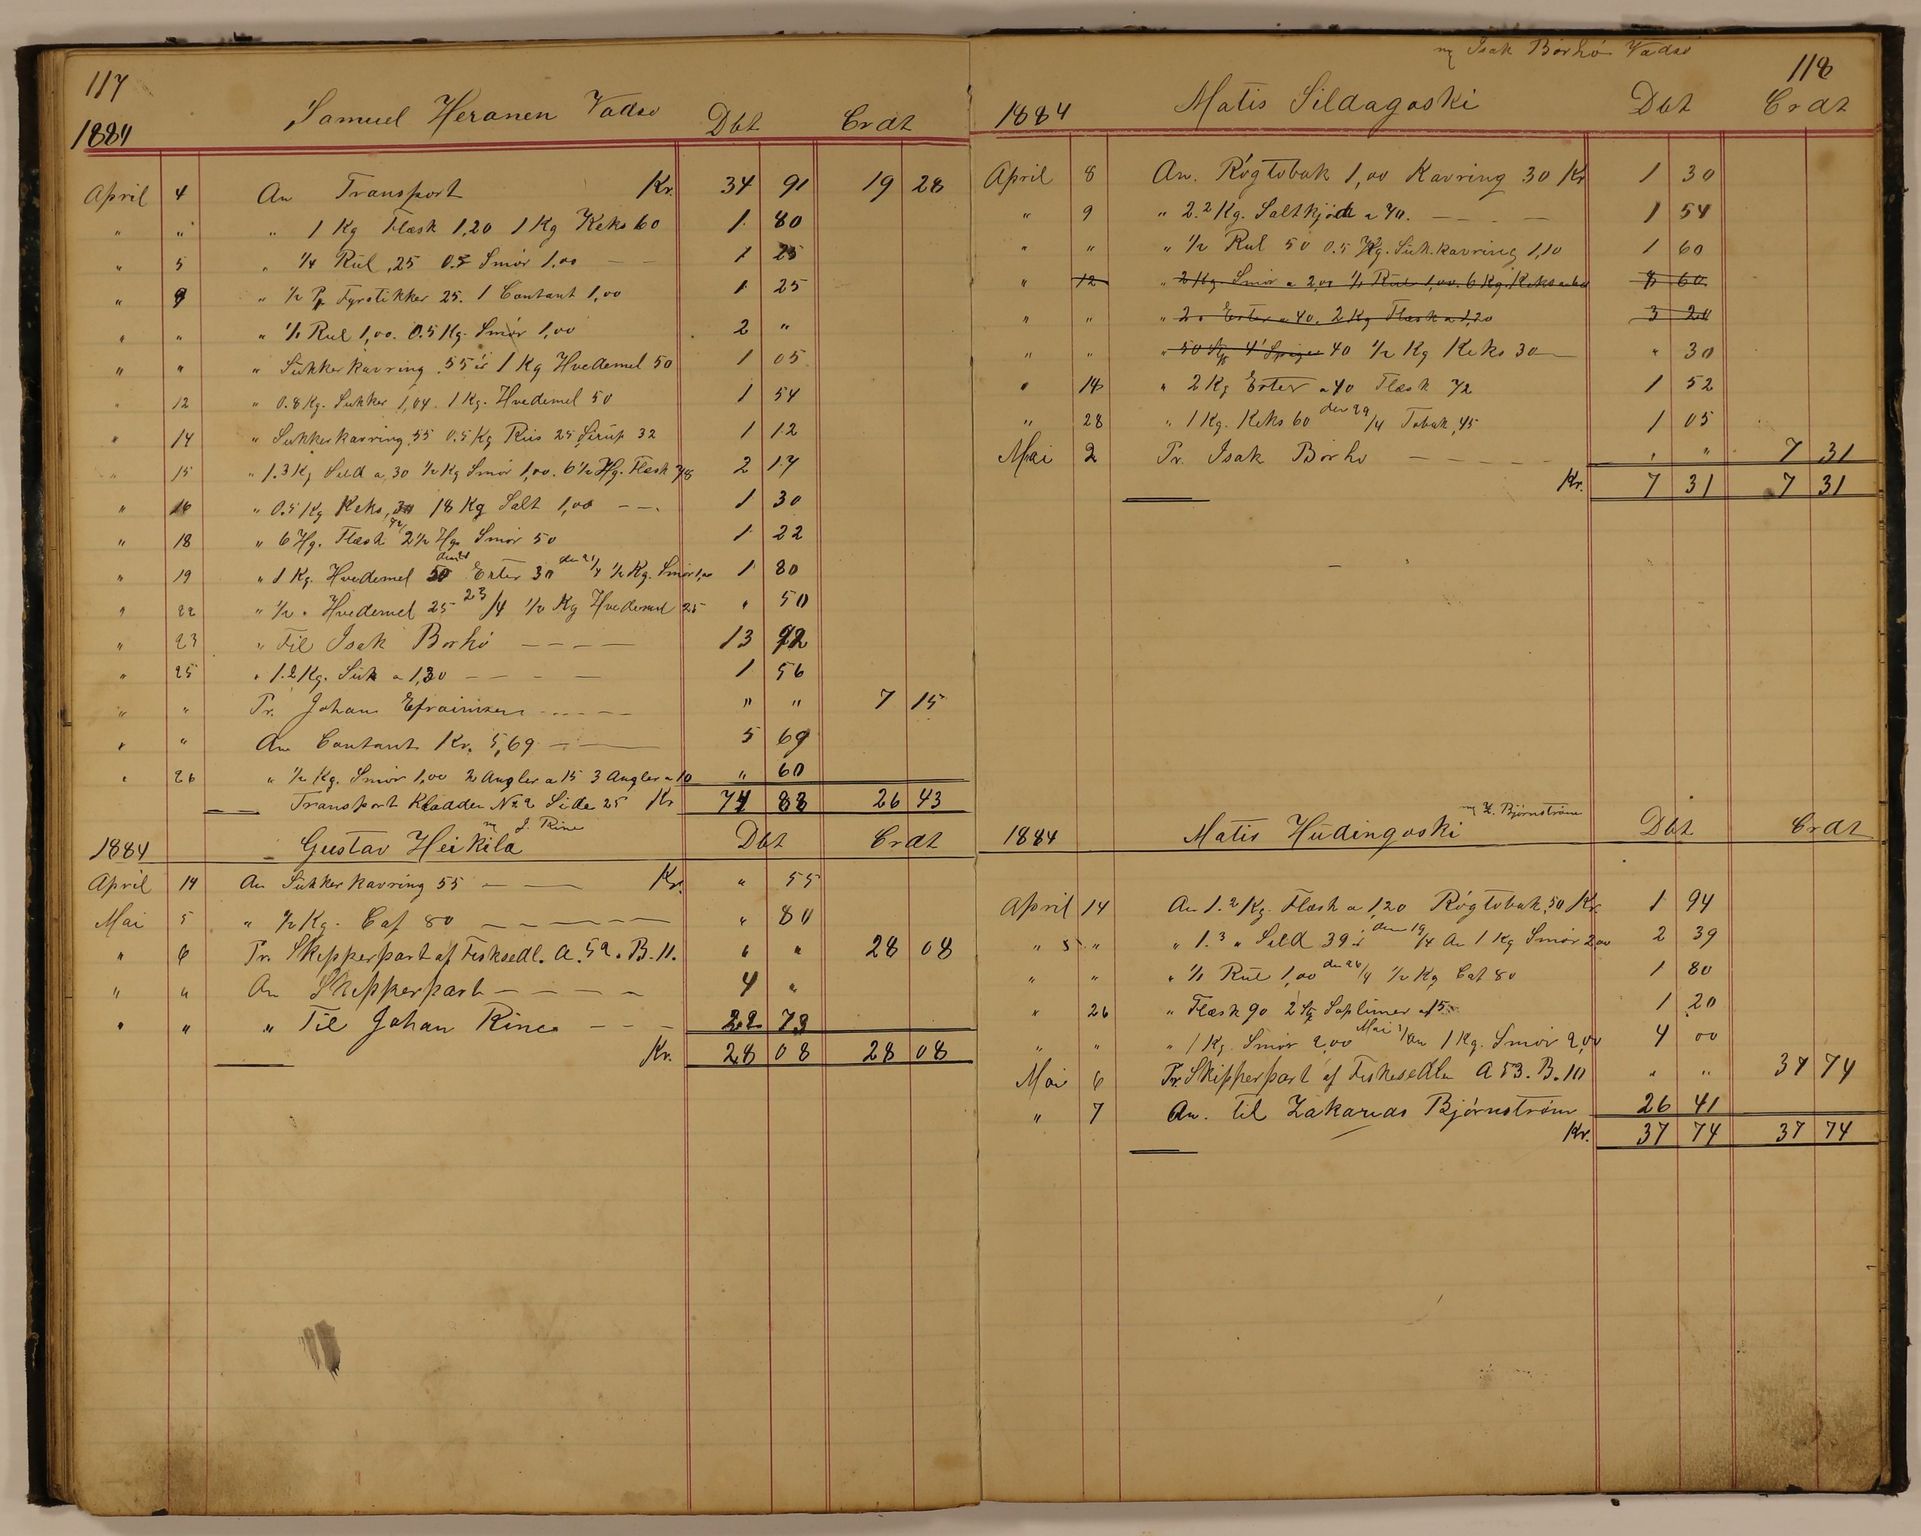 117
1884 Samuel Heranen Vadsø Dbt Crdt
April 4 An Transport Kr. 34 91 19 28
" " " 1 Kg Flæsk 1,20 1 Kg Keks 60 1 80
" 5 " 1/4 Rul ,25 0.5 Smør 1,00 — — 1 25
" 9 " 1/2 Pk Fyrstikker 25. 1 Contant 1,00 1 25
" " " 1/1 Rul 1,00. 0.5 Kg. Smør 1,00 2 "
" " " Sukkerkavring .55 1 Kg Hvedemel 50 1 05
" 12 " 0.8 Kg. Sukker 1,04. 1 Kg. Hvedemel 50 1 54
" 14 " Sukkerkavring ,55 0.5 Kg Riis 25 Sirup 32 1 12
" 15 " 1.3 Kg Sild a ,30 1/2 Kg Smør 1,00. 6 1/2 Hg. Flesk 78 2 17
" 16 " 0.5 Kg Keks ,30 18 Kg Salt 1,00 — — 1 30
" 18 " 6 Hg. Flæsk 72/ 2 1/2 Hg. Smør 50 1 22
" 19 " 1 Kg. Hvedemel 50 Erter 30 den 21/4 1/2 Kg. Smør 1,00 1 80
" 22 " 1/2 " Hvedemel 25 23/4 1/2 Kg Hvedemel 25 " 50
" 23 " Til Isak Borhø — — — — 13 92
" 25 " 1.2 Kg. Suk a 1,30 — — — — 1 56
" " Pr. Johan Efraimsen — — — " " 7 15
" " An Contant Kr. 5,69 — — 5 69
" 26 " 1/2 Kg. Smør 1,00 2 Angler a 15 3 Angler a 10 " 60
Transport Kladden No 2 Side 25 Kr 74 83 26 43
J. Rine
1884 Gustav Heikila Dbt Crdt
April 14 An Sukkerkavring 55 — — Kr. " 55
Mai 5 " 1/2 Kg. Caf 80 — — — — " 80
" 6 Pr. Skipperpart af Fiskesedl. A. 52. B. 11. " " 28 08
" " An Skipperpart — — — — 4 "
" " " Til Johan Rine — — — 22 73
Kr. 28 08 28 08
Isak Børhø Vadsø
118
1884 Matis Sildagoski Dbt Crdt
April 8 An. Røgtobak 1,00 Kavring 30 Kr 1 30
" 9 " 2.2 Kg. Saltkjød a 70. — — — 1 54
" " " 1/2 Rul 50 0.5 Kg. Suk.kavring 1,10 1 60
" 12 " 2 Kg. Smør a 2,00 1/1 Rul 1,00. 6 Kg. Keks a 60 8 60
" " " 2 " Erter a 40. 2 Kg Flæsk a 1,20 3 20
" " " 50 Stk 4" Spiger 40 1/2 Kg Keks 30 — " 30
" 14 " 2 Kg Erter a 40 Flæsk 72 1 52
" 28 " 1 Kg. Keks 60 den 29/4 Tobak ,45 1 05
Mai 2 Pr. Isak Borhø — — — — " " 7 31
Kr. 7 31 7 31
Z. Bjørnstrøm
1884 Matis Hudingoski Dbt Crdt
April 14 An 1.2 Kg. Flæsk a 1,20 Røgtobak ,50 Kr. 1 94
" " " 1.3 " Sild 39 den 19/4 An 1 Kg Smør 2,00 2 39
" " " 1/1 Rul 1,00 den 26/4 1/2 Kg Caf 80 1 80
" 26 " Flæsk 90 2 Stk Saplimer a 15 1 20
" " " 1 Kg. Smør 2,00 Mai An 1 Kg. Smør 2,00 4 00
Mai 6 Pr. Skipperpart af Fiskesedln A 53. B. 10 " " 37 74
" 7 An. Til Zakarias Bjørnstrøm 26 41
Kr. 37 74 37 74